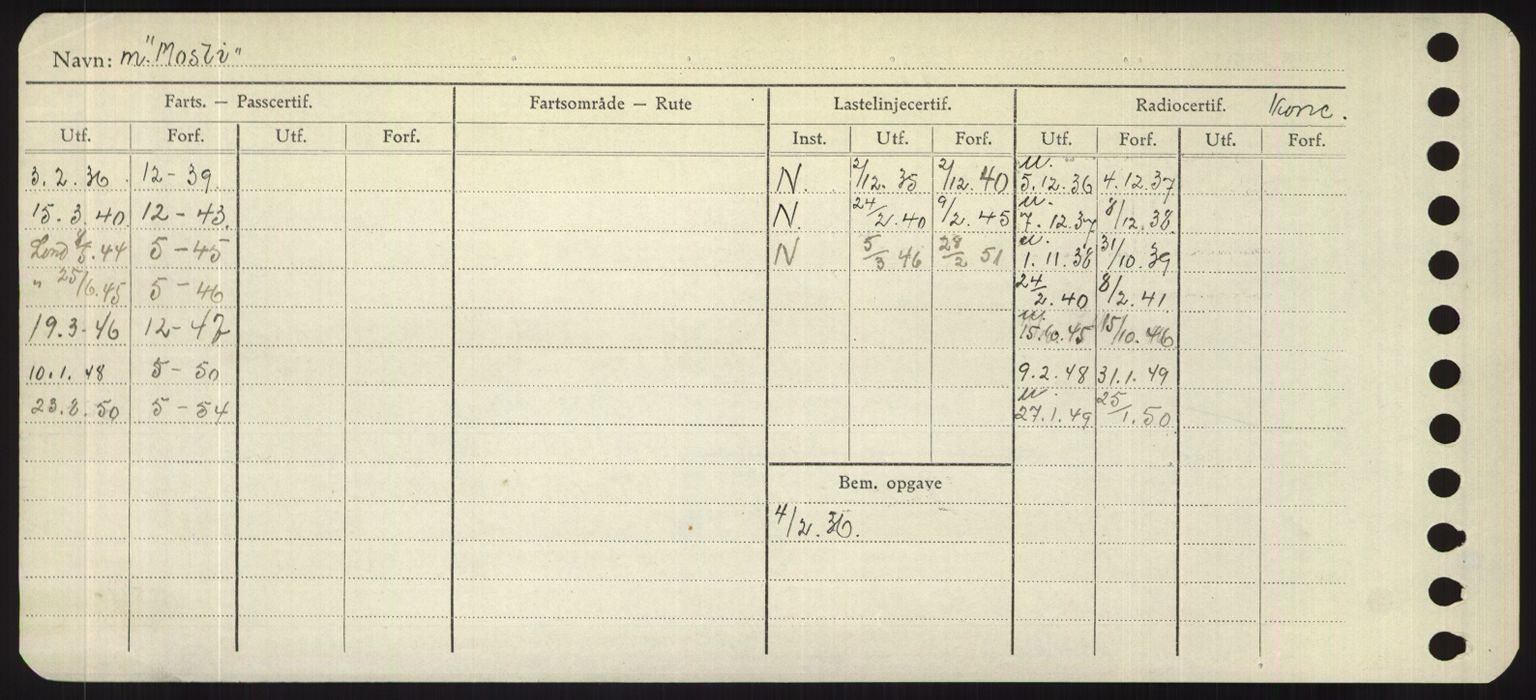 Navn: m."Mosli"
Farts. — Passcertif. Fartsområde — Rute Lastelinjecertif. Radiocertif. Konc.
Utf. Forf. Utf. Forf. Inst. Utf. Forf. Utf. Forf. Utf. Forf.
3.2.36 12-39 N. 2/12.35 2/12.40 u. 5.12.36 4.12.37
15.3.40 12-43. N. 24/2.40 9/2.45 u. 7.12.37 8/12.38.
Lond 8/5.44 5-45 N 5/3 46 28/2 51 u. 1.11.38 31/10.39
" 25/6.45 5-46 24/2.40 8/2.41
19.3.46 12-47 u. 15.10.45 15/10.46
10.1.48 5-50 9.2.48 31.1.49
23.8.50 5-54 u. 27.1.49 25/1.50
Bem. opgave
4/2.36.